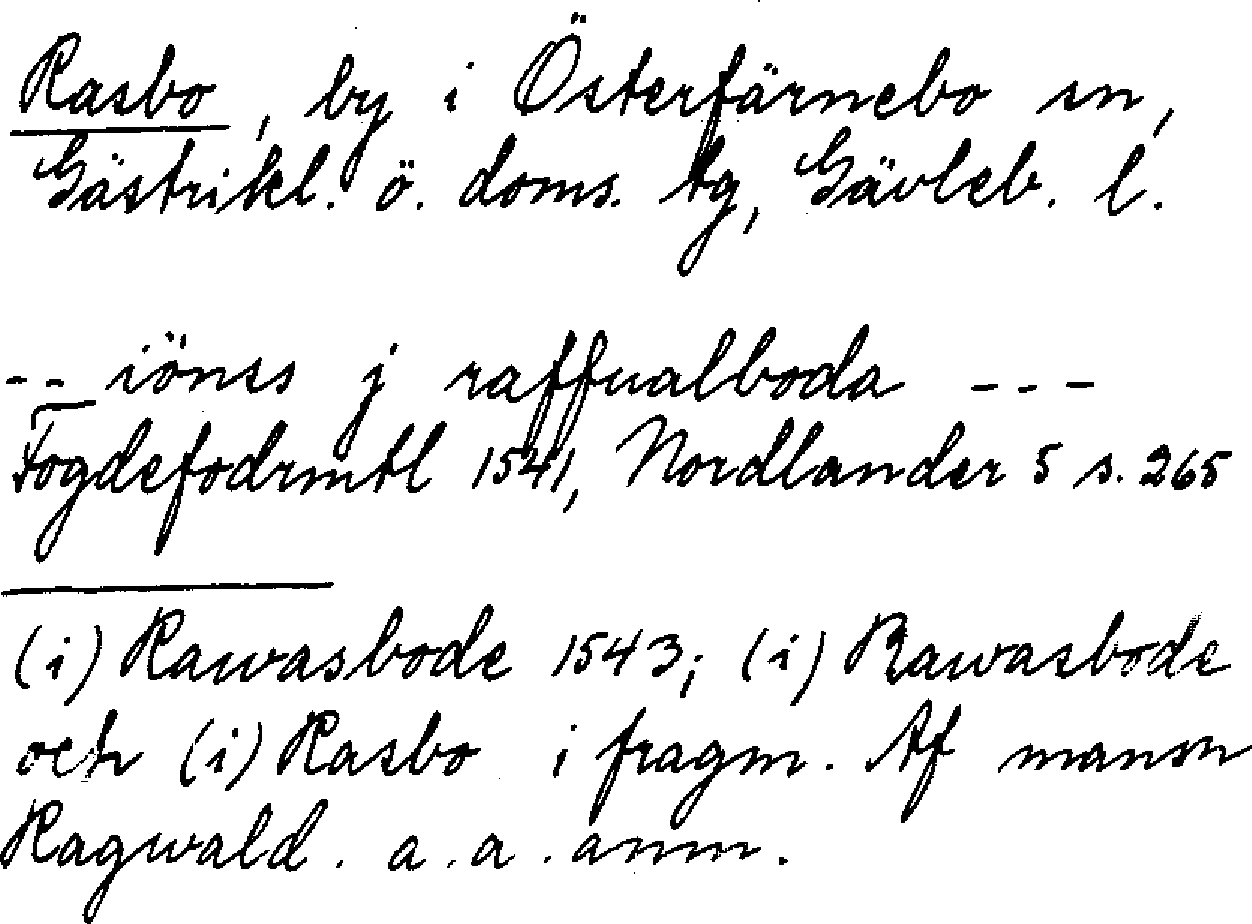 Rasbo, by i Österfärnebo sn,
Gästrikl. ö. doms. tg, Gävleb. l.
-- iönss j raffualboda ---
Fogdefodrmtl 1541, Nordlander 5 s. 265
(i) Rawasbode 1543; (i) Rawasbode
och (i) Rasbo i fragm. Af mansn
Ragwald. a.a. anm.